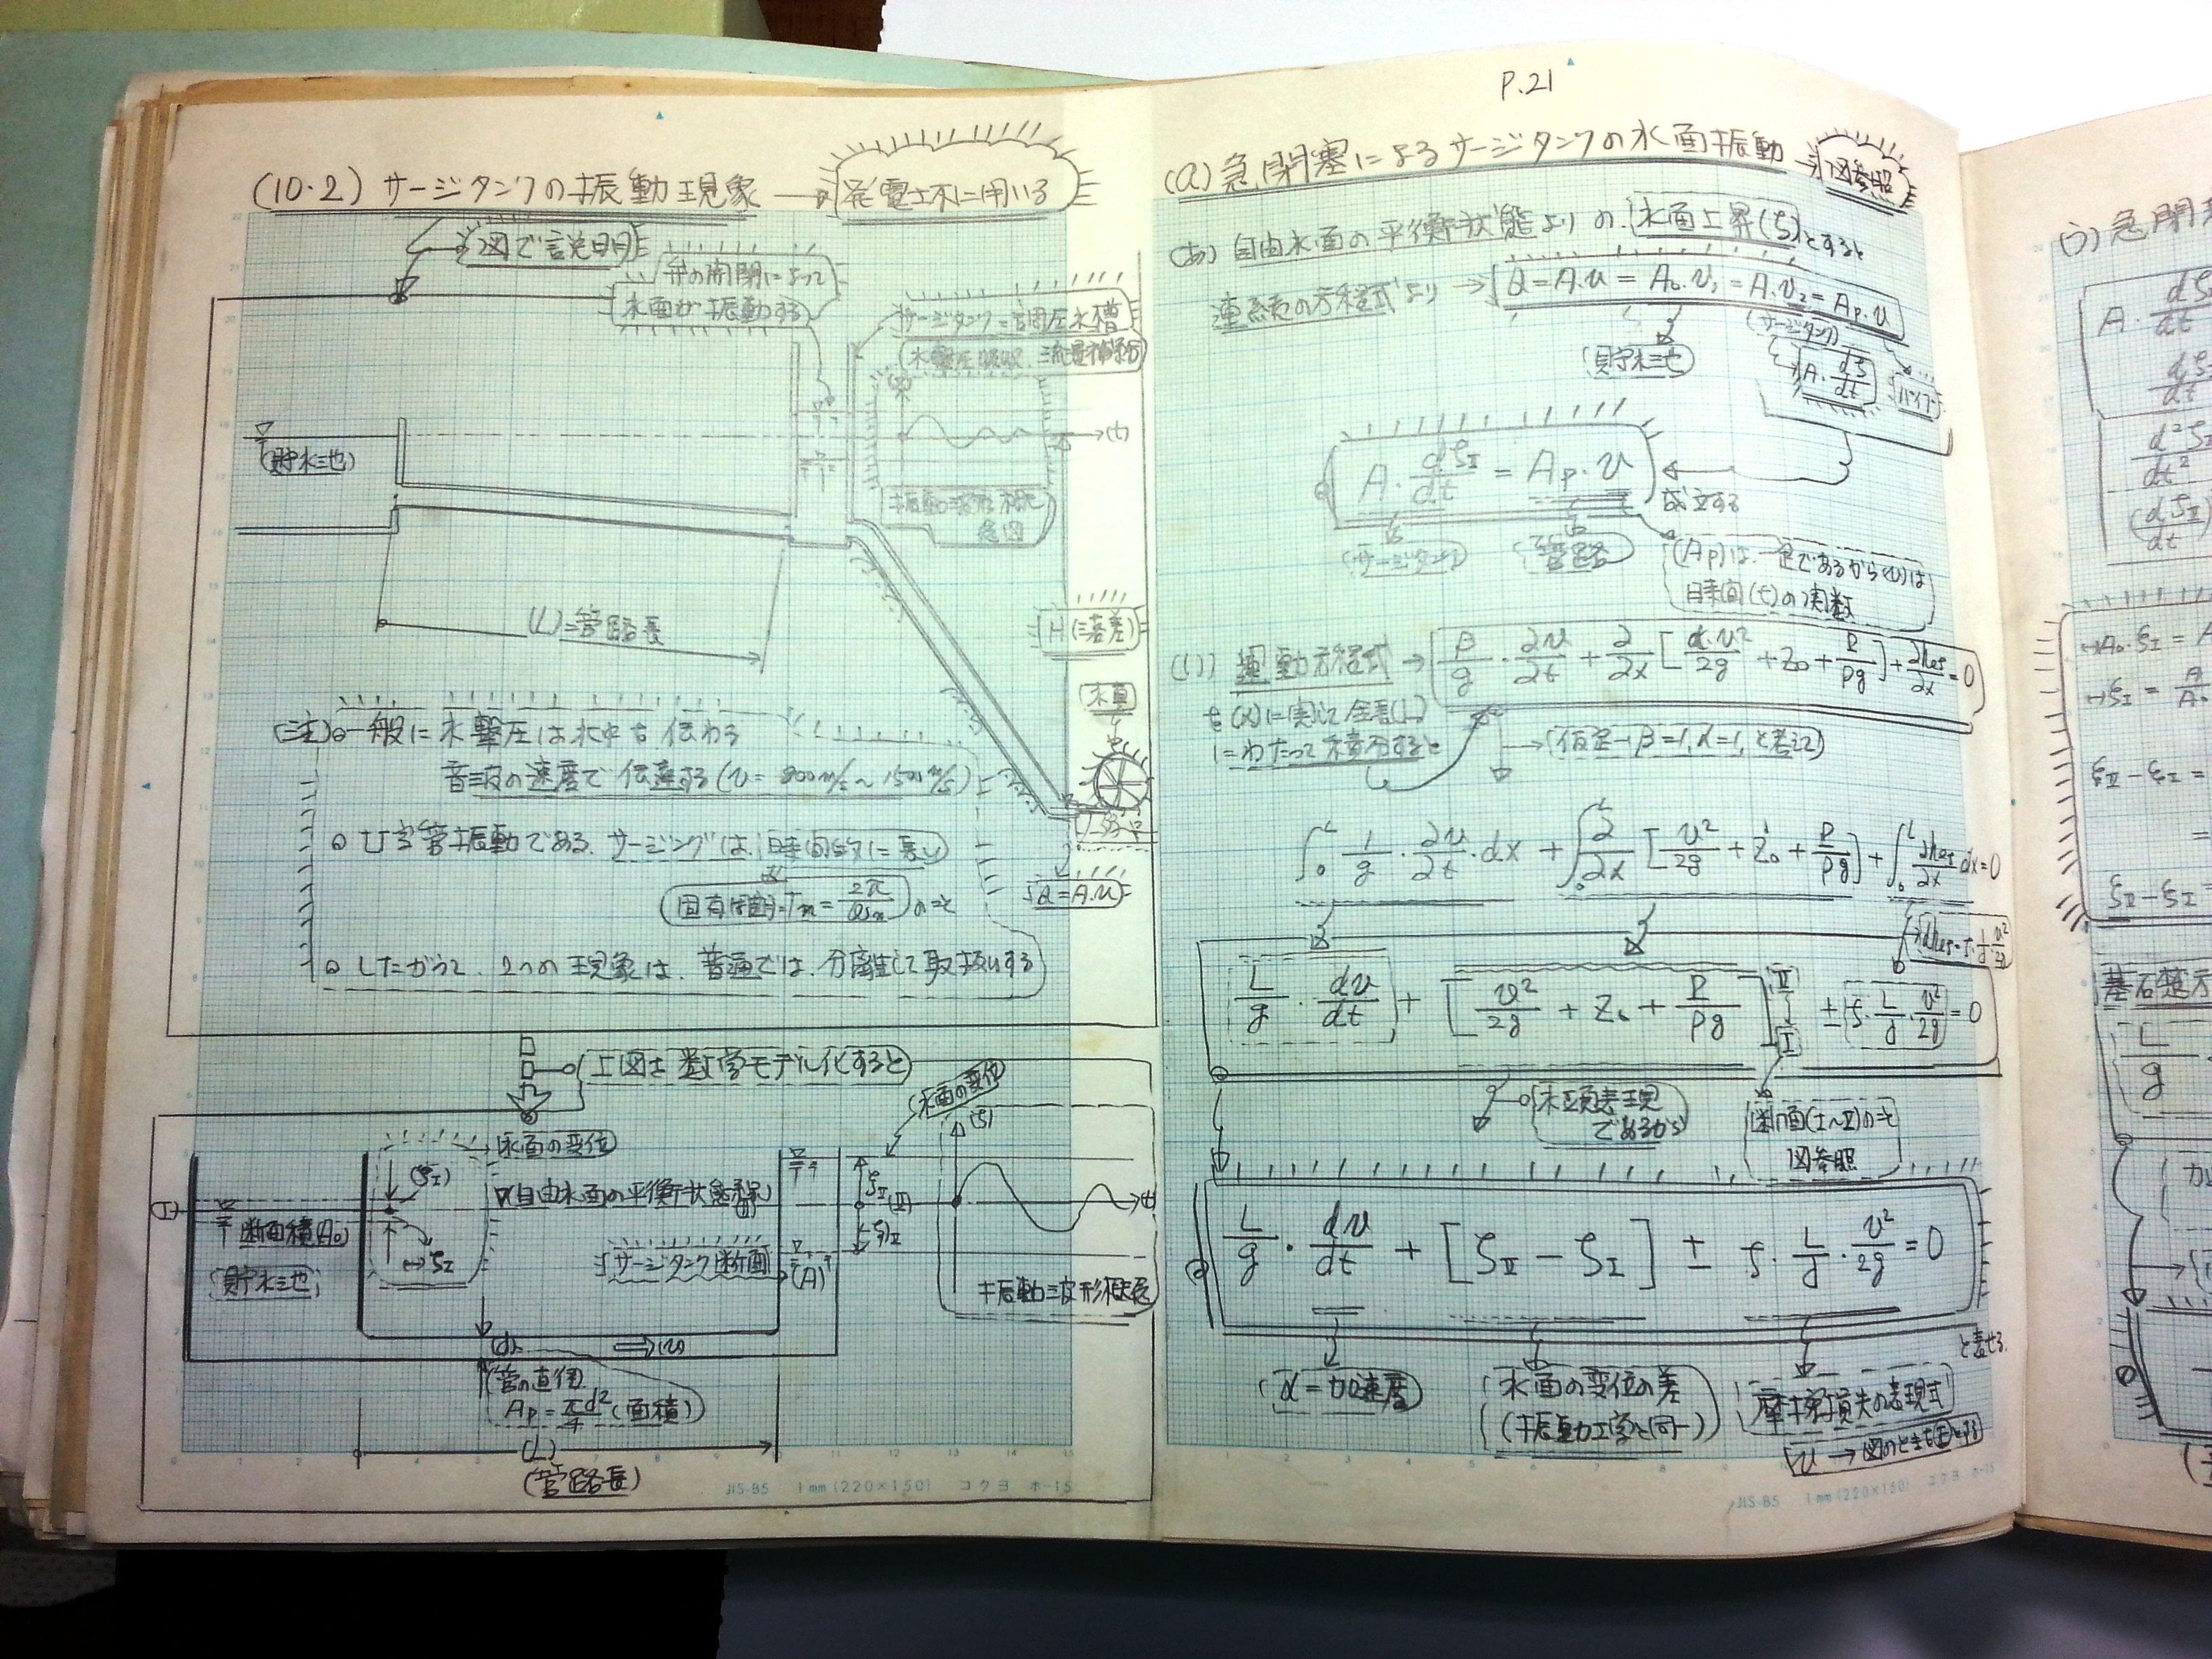 P.21
(10・2) サージタンクの振動現象 → 発電水に用いる
図で説明
弁の開閉によって
水面が振動する
サージタンク=調圧水槽
(水撃圧吸収、流量補給)
(t)
(貯水池)
振動波形概念図
(L)=管路長
H(=落差)
水車
(注)⊙一般に水撃圧は水中を伝わる
音波の速度で伝達する(v=800m/s~1500m/s)
⊙ U字管振動である。サージングは、時間的に長い
固有周期=Tn=2π/ωn のこと
Q=A.v
⊙ したがって、2つの現象は、普通では、分離して取扱いする
上図を数学モデル化すると
水面の変位
(ζ)
水面の変位
(ζI)
▽(自由水面の平衡状態)
断面積(A0)
(貯水池)
サージタンク断面
(A)
(t)
振動波形概念
(d)
⇒(v)
管の直径
Ap=πd²/4(面積)
(L)
(管路長)
JIS-B5 1mm(220×150) コクヨ ホ-15
(a)急閉塞によるサージタンクの水面振動→図参照
(あ) 自由水面の平衡状態よりの、水面上昇(ζ)とすると
連続の方程式より→ Q=A.v=A0.v1=A.v2=Ap.v
(サージタンク)
貯水池
A.dζ/dt
パイプ
A・dζII/dt = Ap・v
成立する
(サージタンク)
管路
(Ap)は一定であるから(v)は
時間(t)の関数
(い) 運動方程式→ β/g・∂v/∂t + ∂/∂x[α.v²/2g + Z0 + P/ρg] + ∂hes/∂x = 0
を(x)に関して全長(L)
にわたって積分すると
→(仮定→β=1,α=1,と考えて)
∫₀ᴸ 1/g・∂v/∂t・dx + ∫₀ᴸ ∂/∂x[v²/2g + Z0 + P/ρg] + ∫₀ᴸ ∂hes/∂x dx=0
L/g・dv/dt + [v²/2g + Z0 + P/ρg] II I ± f・L/d・v²/2g = 0
水頭表現
であるから
断面(I~II)のこと
図参照
L/g・dv/dt + [ζII − ζI] ± f・L/d・v²/2g = 0
と表せる
α=加速度
水面の変位の差
(振動工学と同一)
摩擦損失の表現式
JIS-B5 1mm(220×150) コクヨ ホ-15